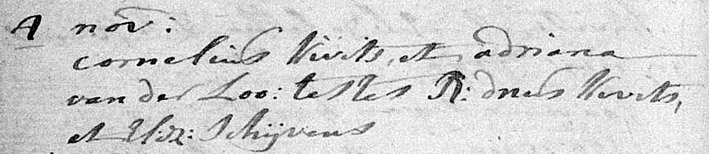 4 nov:
cornelius Vivits, et adriana
van der Loo: testes R: dnus Vivits,
et Eliz: Schijvens